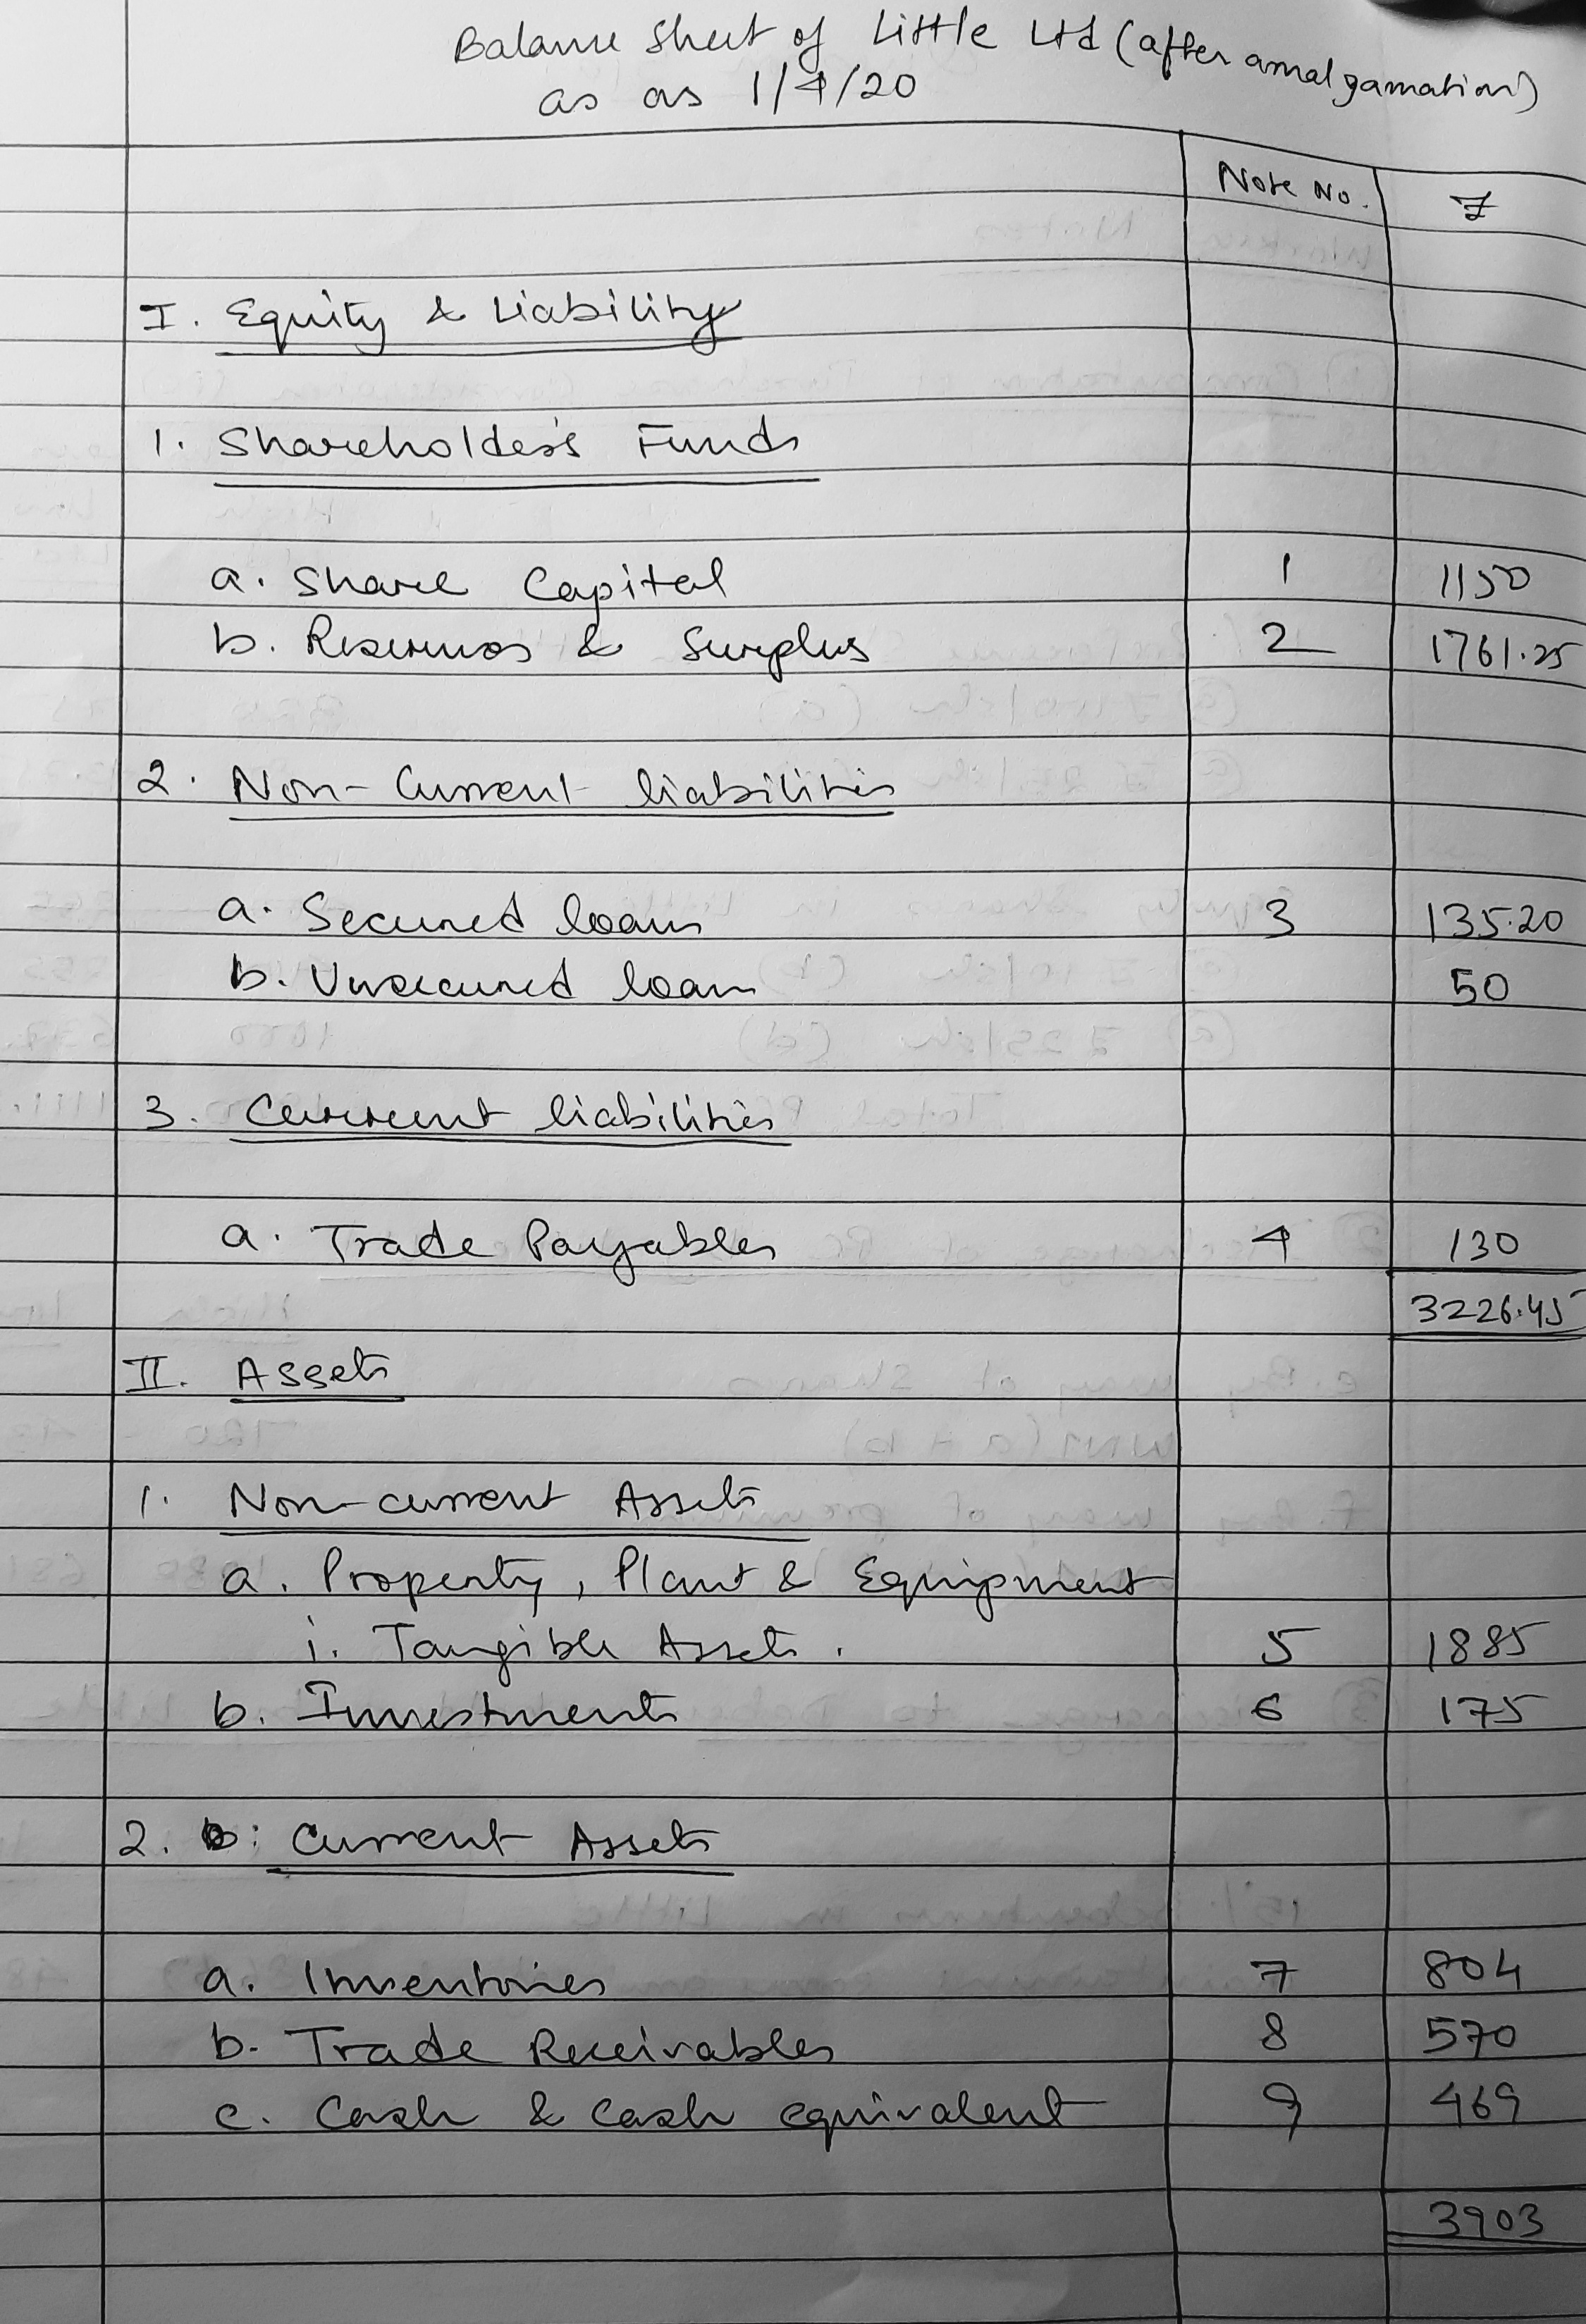 Balance Sheet of Little Ltd (after amalgamation)
as as 1/4/20
Note No. ₹
I. Equity & Liability
1. Shareholder's Funds
a. Share Capital 1 1150
b. Reserves & Surplus 2 1761.25
2. Non-Current liabilities
a. Secured loans 3 135.20
b. Unsecured loan 50
3. Current liabilities
a. Trade Payables 4 130
3226.45
II. Assets
1. Non-current Assets
a. Property, Plant & Equipment
i. Tangible Assets. 5 1885
b. Investments 6 175
2. b: Current Assets
a. Inventories 7 804
b. Trade Receivables 8 570
c. Cash & cash equivalent 9 469
3903